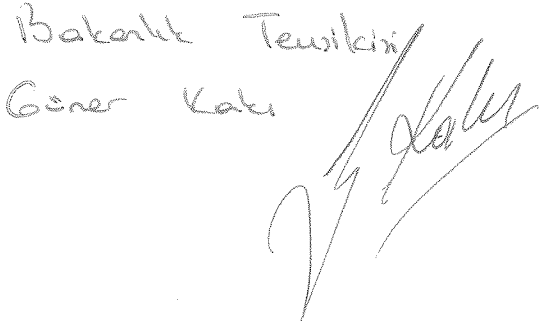 Bakanlık Temsilcisi
Güner Kakı